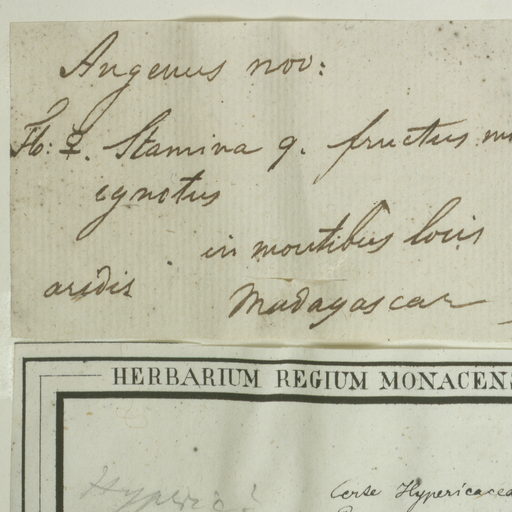 An genus nov:
Fl: ☿. Stamina 9. fructus mi
ignotus
in montibus locis
aridis
Madagascar
HERBARIUM REGIUM MONACENS
Hyperic?
Certe Hypericacea